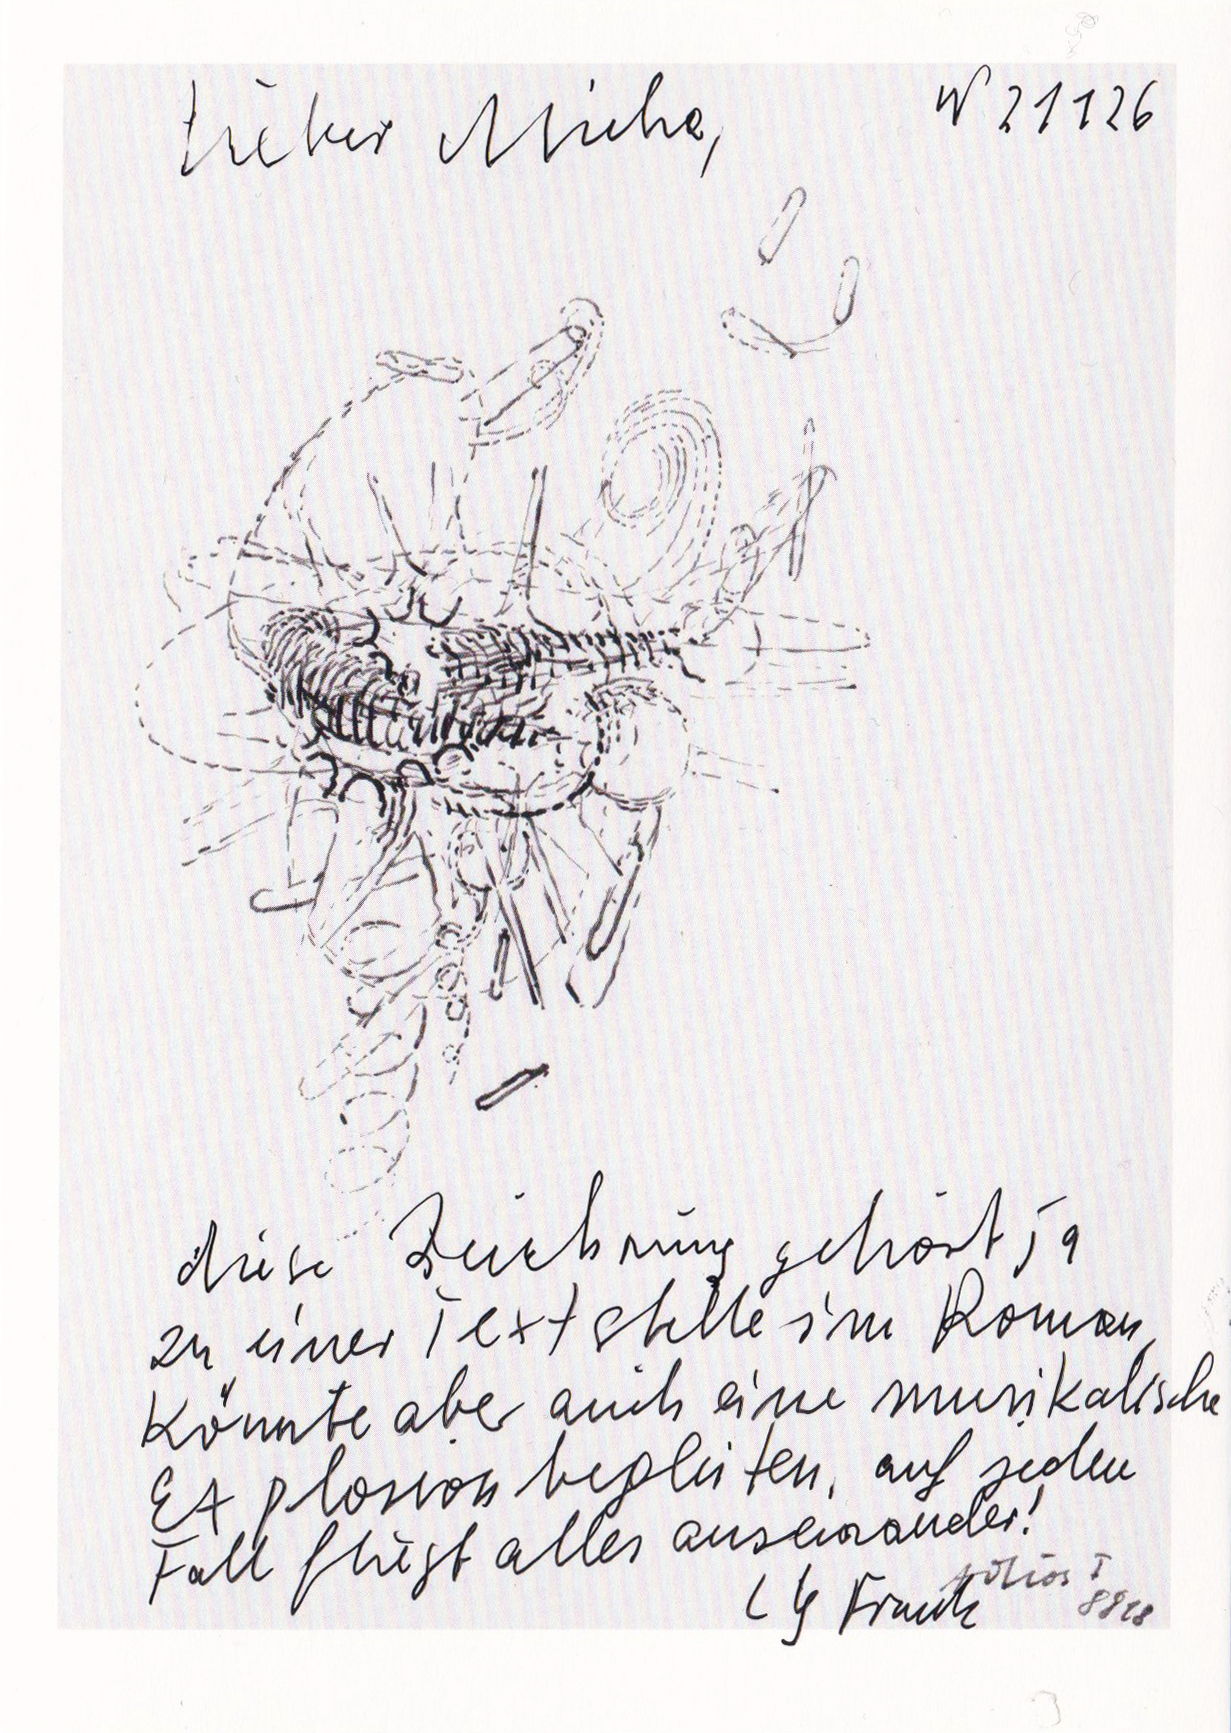 Lieber Micha,
W 21126
diese Zeichnung gehört ja
zu einer Textstelle im Roman,
könnte aber auch eine musikalische
Explosion begleiten, auf jeden
Fall fliegt alles auseinander!
LG Frank
I
8818